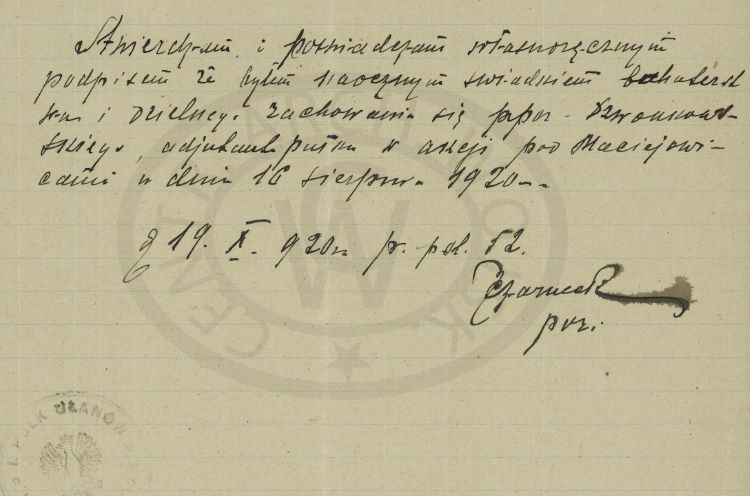 Stwierdzam i poświadczam własnoręcznym
podpisem że byłem naocznym świadkiem bohaterst
wa i dzielnego zachowania się ppor. Dzwonkow-
skiego, adjutant pułku w akcji pod Maciejowi-
cami w dniu 16 sierpnia 1920 r.
19. X. 920 r. p. pol. 52.
Czarnecki
por.
PUŁK UŁANÓW